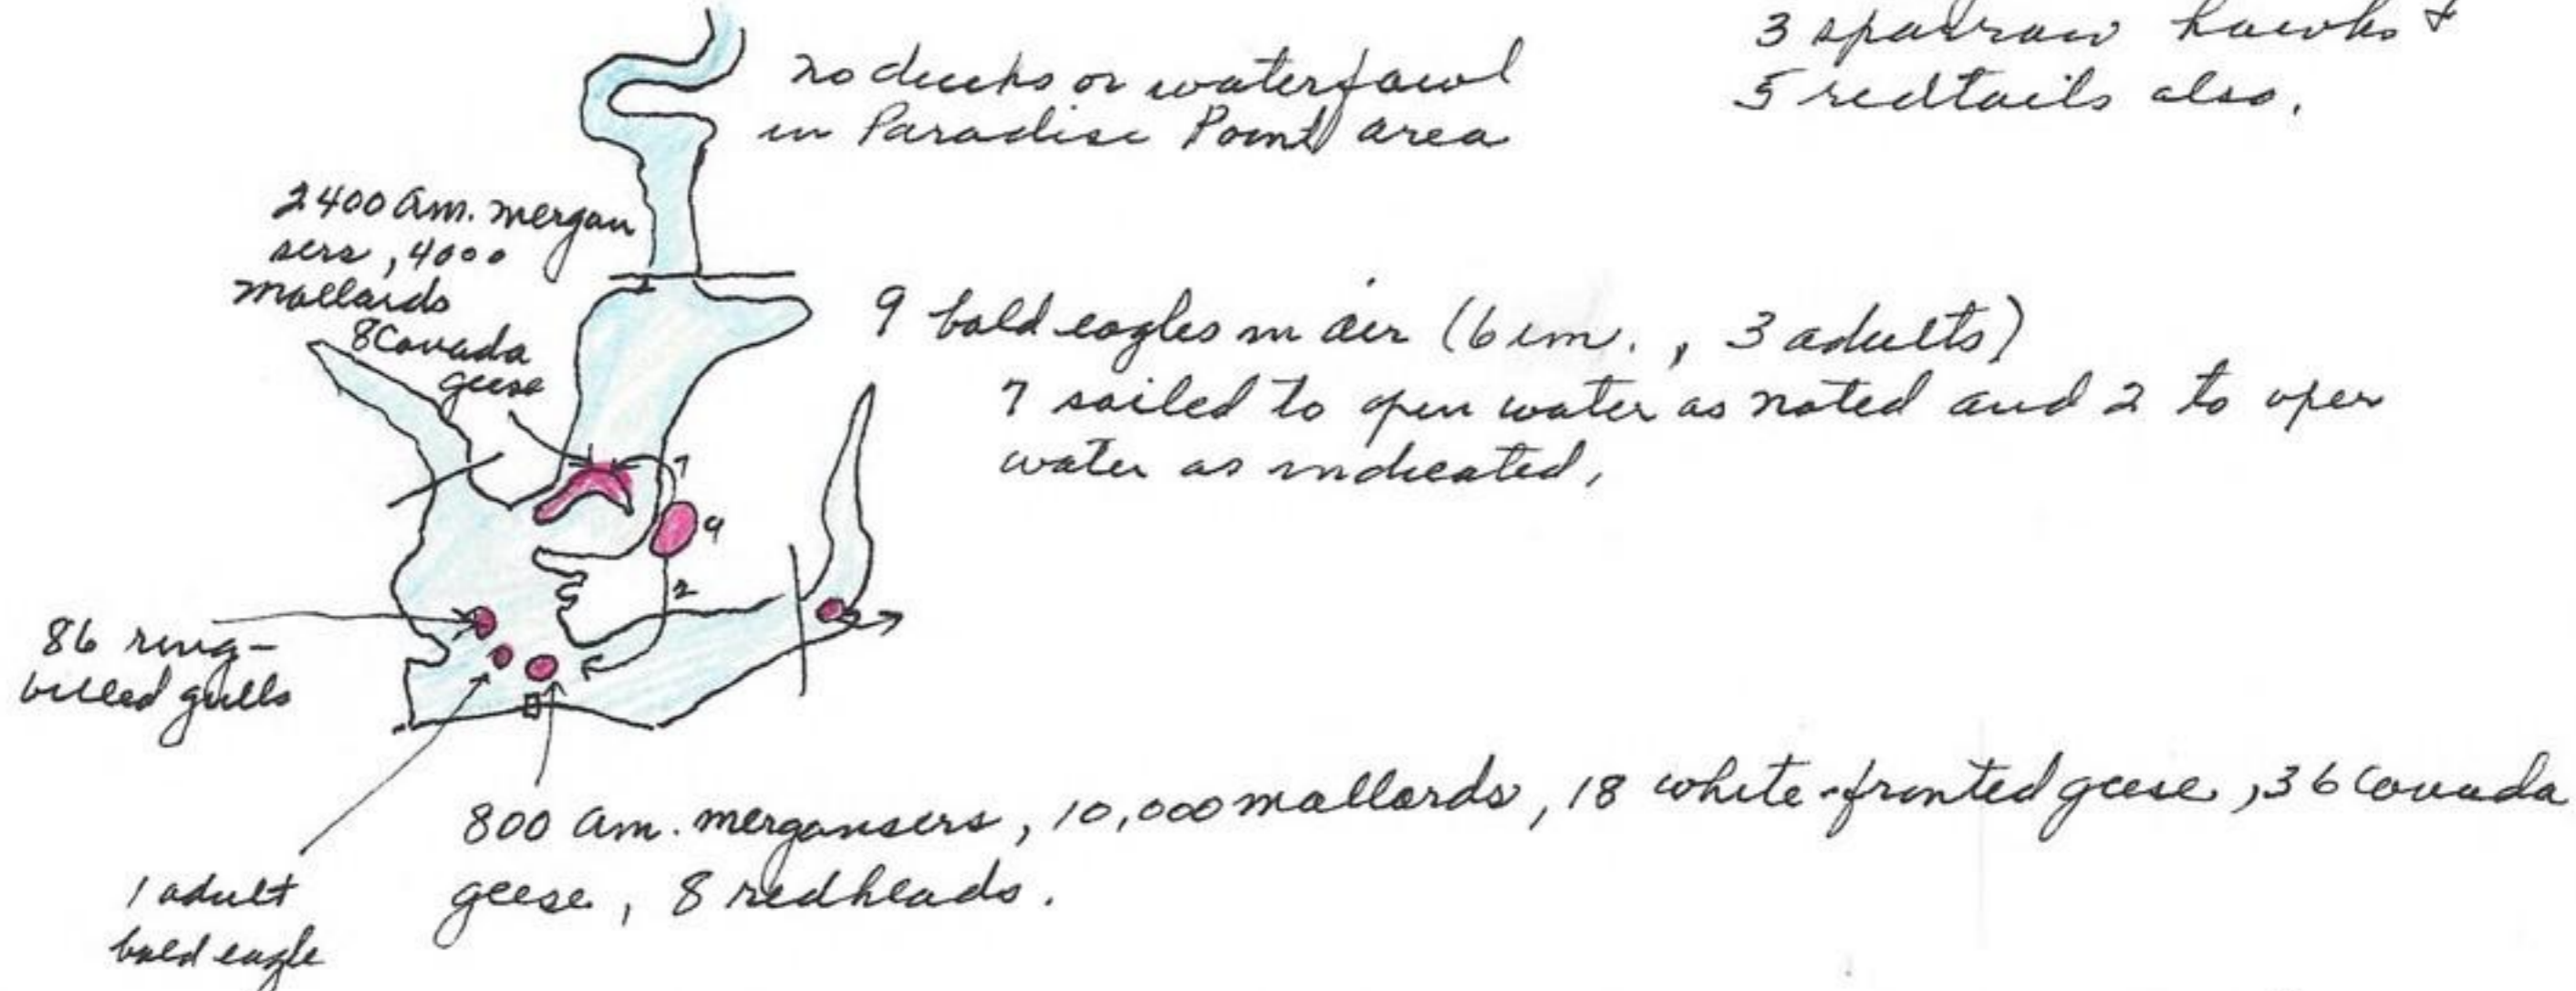 3 sparrow hawks +
5 redtails also.
no ducks or waterfowl
in Paradise Point area
2400 am. mergan
sers, 4000
mallards
8 Canada
geese
9 bald eagles in air (6 im., 3 adults)
7 sailed to open water as noted and 2 to open
water as indicated,
7
9
2
86 ring-
billed gulls
800 am. mergansers, 10,000 mallards, 18 white-fronted geese, 36 Canada
geese, 8 redheads.
1 adult
bald eagle